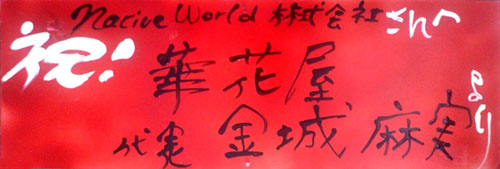 Native World 株式会社さんへ
祝!
華花屋
代実 金城 麻実
より